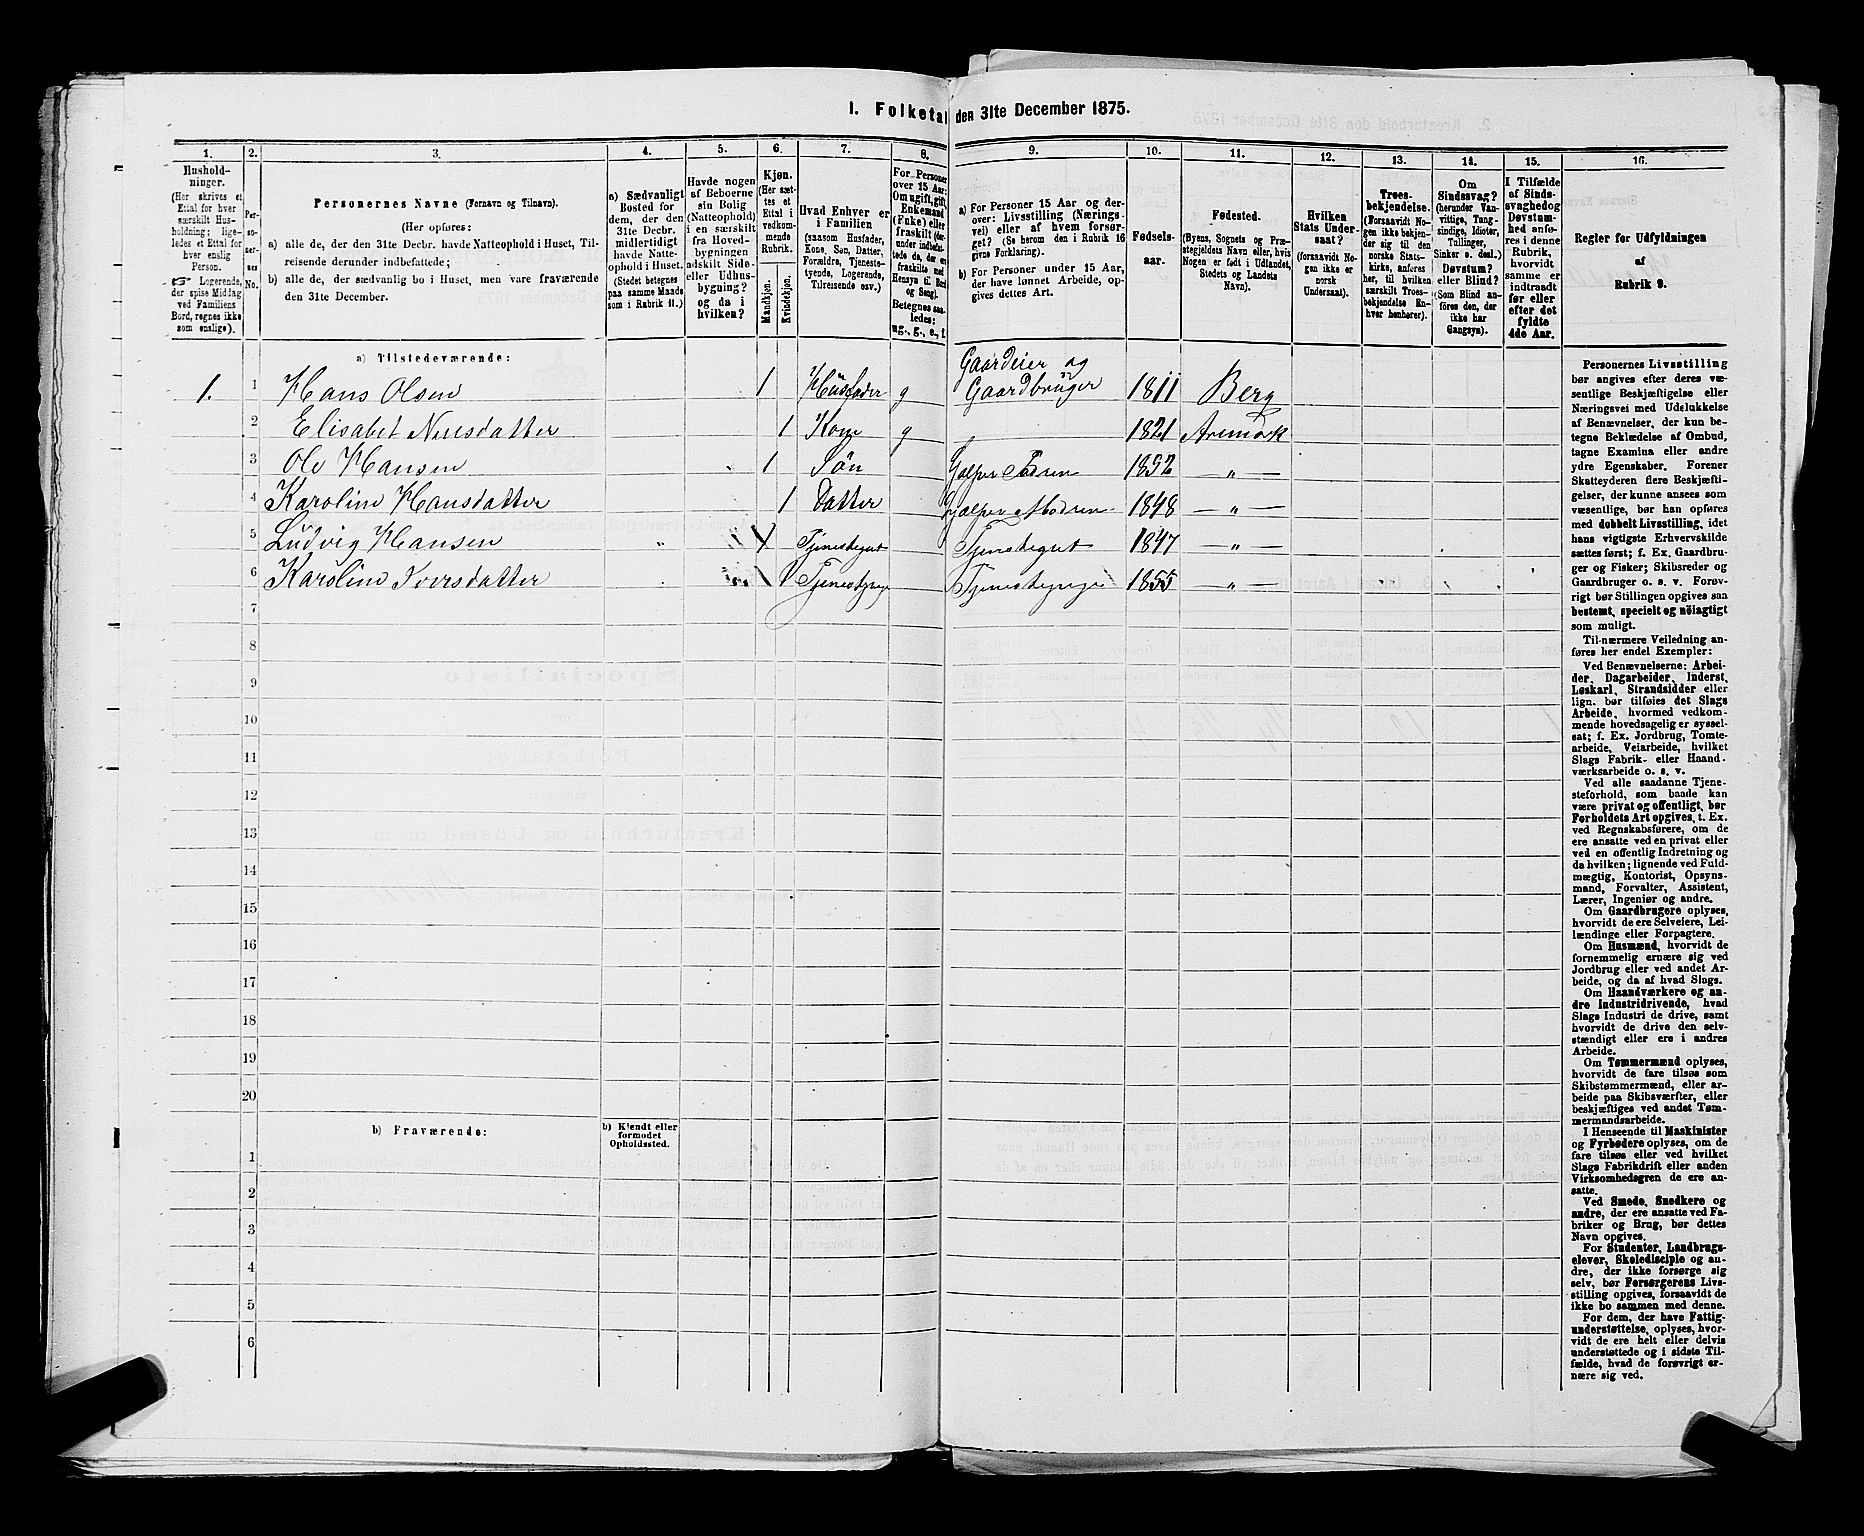 1. Folketal den 31te December 1875.
1. 2. 3. 4. 5. 6. 7. 8. 9. 10. 11. 12. 13. 14. 15. 16.
Hushold-
ninger.
(Her skrives et
Ettal for hver
særskilt Hus-
holdning; lige-
ledes et Ettal for
hver enslig
Person.
☞ Logerende,
der spise Middag
ved Familiens
Bord, regnes ikke
som enslige).
Per-
so-
ner-
nes
No.
Personernes Navne (Fornavn og Tilnavn).
(Her opføres:
a) alle de, der den 31te Decbr. havde Natteophold i Huset, Til-
reisende derunder indbefattede;
b) alle de, der sædvanlig bo i Huset, men vare fraværende
den 31te December.
a) Sædvanligt
Bosted for
dem, der den
31te Decbr.
midlertidigt
havde Natte-
ophold i Huset.
(Stedet betegnes
paa samme Maade
som i Rubrik 11.)
Havde nogen
af Beboerne
sin Bolig
(Natteophold)
i en særskilt
fra Hoved-
bygningen
adskilt Side-
eller Udhus-
bygning?
og da i
hvilken?
Kjøn.
(Her sæt-
tes et
Ettal i
vedkom-
mende
Rubrik.
Mandkjøn.
Kvindekjøn.
Hvad Enhver er
i Familien
(saasom Husfader,
Kone, Søn, Datter,
Forældre, Tjeneste-
tyende, Logerende,
Tilreisende osv.)
For Personer
over 15 Aar:
Om ugift, gift,
Enkemand
(Enke) eller
fraskilt (der-
under indbefat-
tede de, der ere
fraskilte med
Hensyn til Bord
og Seng).
Betegnes saa-
ledes:
ug., g., e., f.
a) For Personer 15 Aar og der-
over: Livsstilling (Nærings-
vei) eller af hvem forsør-
get? (Se herom den i Rubrik 16
givne Forklaring).
b) For Personer under 15 Aar,
der have lønnet Arbeide, op-
gives dettes Art.
Fødsels-
aar.
Fødested.
(Byens, Sognets og Præ-
stegjeldets Navn eller, hvis
Nogen er født i Udlandet,
Stedets og Landets
Navn).
Hvilken
Stats Under-
saat?
(forsaavidt No-
gen ikke er
norsk
Undersaat).
Troes-
bekjendelse.
(Forsaavidt No-
gen ikke bekjen-
der sig til den
norske Stats-
kirke, anføres
her, til hvilken
særskilt Troes-
bekjendelse En-
hver henhører).
Om
Sindssvag?
(herunder Van-
vittige, Tung-
sindige, Idioter,
Tullinger,
Sinker o. desl.)
Døvstum?
eller Blind?
(Som Blind an-
føres den, der
ikke har
Gangsyn).
I Tilfælde
af Sinds-
svaghed og
Døvstum-
hed anfø-
res i denne
Rubrik,
hvorvidt
samme er
indtraadt
før eller
efter det
fyldte
4de Aar.
Regler for Udfyldningen
af
Rubrik 9.
a) Tilstedeværende:
1. 1 Hans Olsen 1 Husfader g Gaardeier og Gaardbruger 1811 Berg
2 Elisabet Nilsdatter 1 Kone g 1821 Aremark
3 Ole Hansen 1 Søn Hjælper Fadren 1852 — „ —
4 Karoline Hansdatter 1 Datter Hjælper Modren 1848 — „ —
5 Ludvig Hansen „ 1 Tjenestegut Tjenestegut 1847 — „ —
6 Karoline Iversdatter 1 Tjenestepige Tjenestepige 1855 — „ —
7
8
9
10
11
12
13
14
15
16
17
18
19
20
b) Fraværende:
b) Kjendt eller
formodet
Opholdssted.
1
2
3
4
5
6
Personernes Livsstilling
bør angives efter deres væ-
sentlige Beskjæftigelse eller
Næringsvei med Udelukkelse
af Benævnelser, der kun be-
tegne Beklædelse af Ombud,
tagne Examina eller andre
ydre Egenskaber. Forener
Skatteyderen flere Beskjæfti-
gelser, der kunne ansees som
væsentlige, bør han opføres
med dobbelt Livsstilling, idet
hans vigtigste Erhvervskilde
sættes først; f. Ex. Gaardbru-
ger og Fisker; Skibsreder og
Gaardbruger o. s. v. Forøv-
rigt bør Stillingen opgives saa
bestemt, specielt og nøiagtigt
som muligt.
Til nærmere Veiledning an-
føres her endel Exempler:
Ved Benævnelserne: Arbei-
der, Dagarbeider, Inderst,
Løskarl, Strandsidder eller
lign. bør tilføies det Slags
Arbeide, hvormed vedkom-
mende hovedsagelig er syssel-
sat; f. Ex. Jordbrug, Tomte-
arbeide, Veiarbeide, hvilket
Slags Fabrik- eller Haand-
værksarbeide o. s. v.
Ved alle saadanne Tjene-
steforhold, som baade kan
være privat og offentligt, bør
Forholdets Art opgives, t. Ex.
ved Regnskabsførere, om de
ere ansatte ved en privat eller
ved en offentlig Indretning og
da hvilken; lignende ved Fuld-
mægtig, Kontorist, Opsyns-
mand, Forvalter, Assistent,
Lærer, Ingeniør og andre.
Om Gaardbrugere oplyses,
hvorvidt de ere Selveiere, Lei-
lændinge eller Forpagtere.
Om Husmænd, hvorvidt de
fornemmelig ernære sig ved
Jordbrug eller ved andet Ar-
beide, og da af hvad Slags.
Om Haandværkere og an-
dre Industridrivende, hvad
Slags Industri de drive, samt
hvorvidt de drive den selv-
stændigt eller ere i andres
Arbeide.
Om Tømmermænd oplyses,
hvorvidt de fare tilsøs som
Skibstømmermænd, eller ar-
beide paa Skibsværfter, eller
beskjæftiges ved andet Tøm-
mermandsarbeide.
I Henseende til Maskinister
og Fyrbødere oplyses, om de
fare tilsøs eller ved hvilket
Slags Fabrikdrift eller anden
Virksomhedsgren de ere an-
satte.
Ved Smede, Snedkere og
andre, der ere ansatte ved Fa-
briker og Brug, bør dettes
Navn opgives.
For Studenter, Landbrugs-
elever, Skoledisciple og an-
dre, der ikke forsørge sig
selv, bør Forsørgerens Livs-
stilling opgives, forsaavidt de
ikke bo sammen med denne.
For dem, der have Fattig-
understøttelse, oplyses, hvor-
vidt de ere helt eller delvis
understøttede og i sidste Til-
fælde, hvad de forøvrigt er-
nære sig ved.